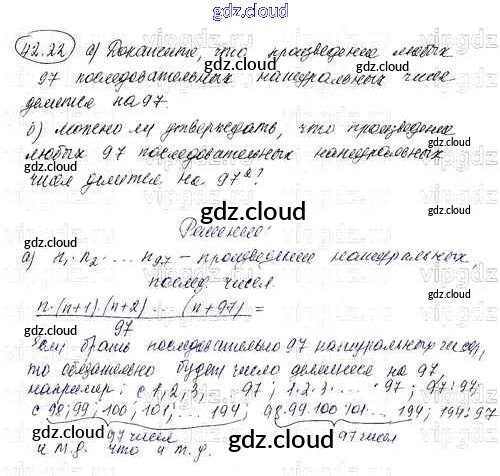 gdz.cloud
42.22 а) Докажите, что произведение любых
97 последовательных натуральных чисел
делится на 97.
б) можно ли утверждать, что произведение
любых 97 последовательных натуральных
чисел делится на 97²?
Решение:
а) n₁·n₂·...n₉₇ – произведение натуральных
послед. чисел.
n·(n+1)(n+2)...(n+97) =
97
Если брать последовательно 97 натуральных чисел,
то обязательно будет число делимое на 97,
например: с 1, 2, 3, ... 97; 1·2·3·...·97; 97:97,
с 98; 99; 100; 101; ... 194; 98·99·100·101·... 194; 194:97
97 чисел 97 чисел
и т.д. что и т.д.
gdz.cloud